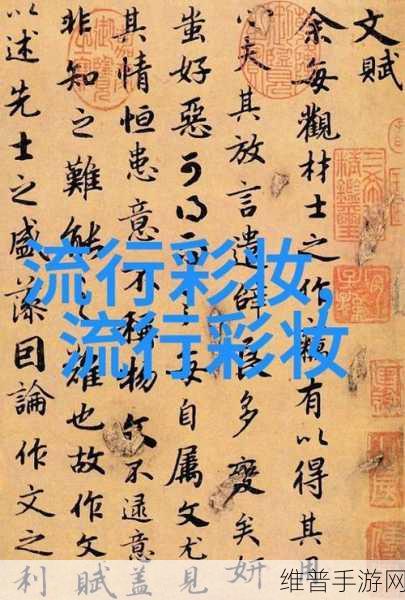 文賦
余每觀材士之作竊有以得其用
心矣其放言遣辭良多變矣妍
蚩好惡可得而每自屬文尤見
其情恒患意不稱物文不逮意蓋
非知之難能之難也故作文賦
以述先士之盛藻因論作文之利
流行彩妆,
流行彩妆
维普手游网